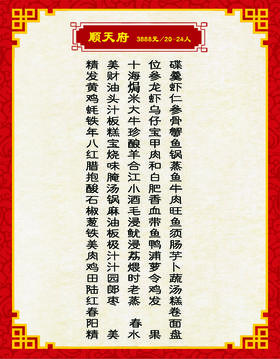 顺天府 3888元/20-24人
精美十位碟
发财海參羹
黄油焗龙虾
鸡头米虾仁
蚝汁大乌參
铁板牛仔骨
年糕珍宝蟹
八宝酿甲鱼
红烧羊肉锅
腊味合和蒸
抱腌江白鱼
酸汤小肥牛
石锅酒香肉
椒麻毛血旺
葱油浸带鱼
铁板鱿鱼须
美极浸鸭肠
肉汁荔浦芋
鸡汁煨萝卜
田园时令蔬
陆郎老鸡汤
红枣蒸发糕
春卷
阳春面
精美水果盘